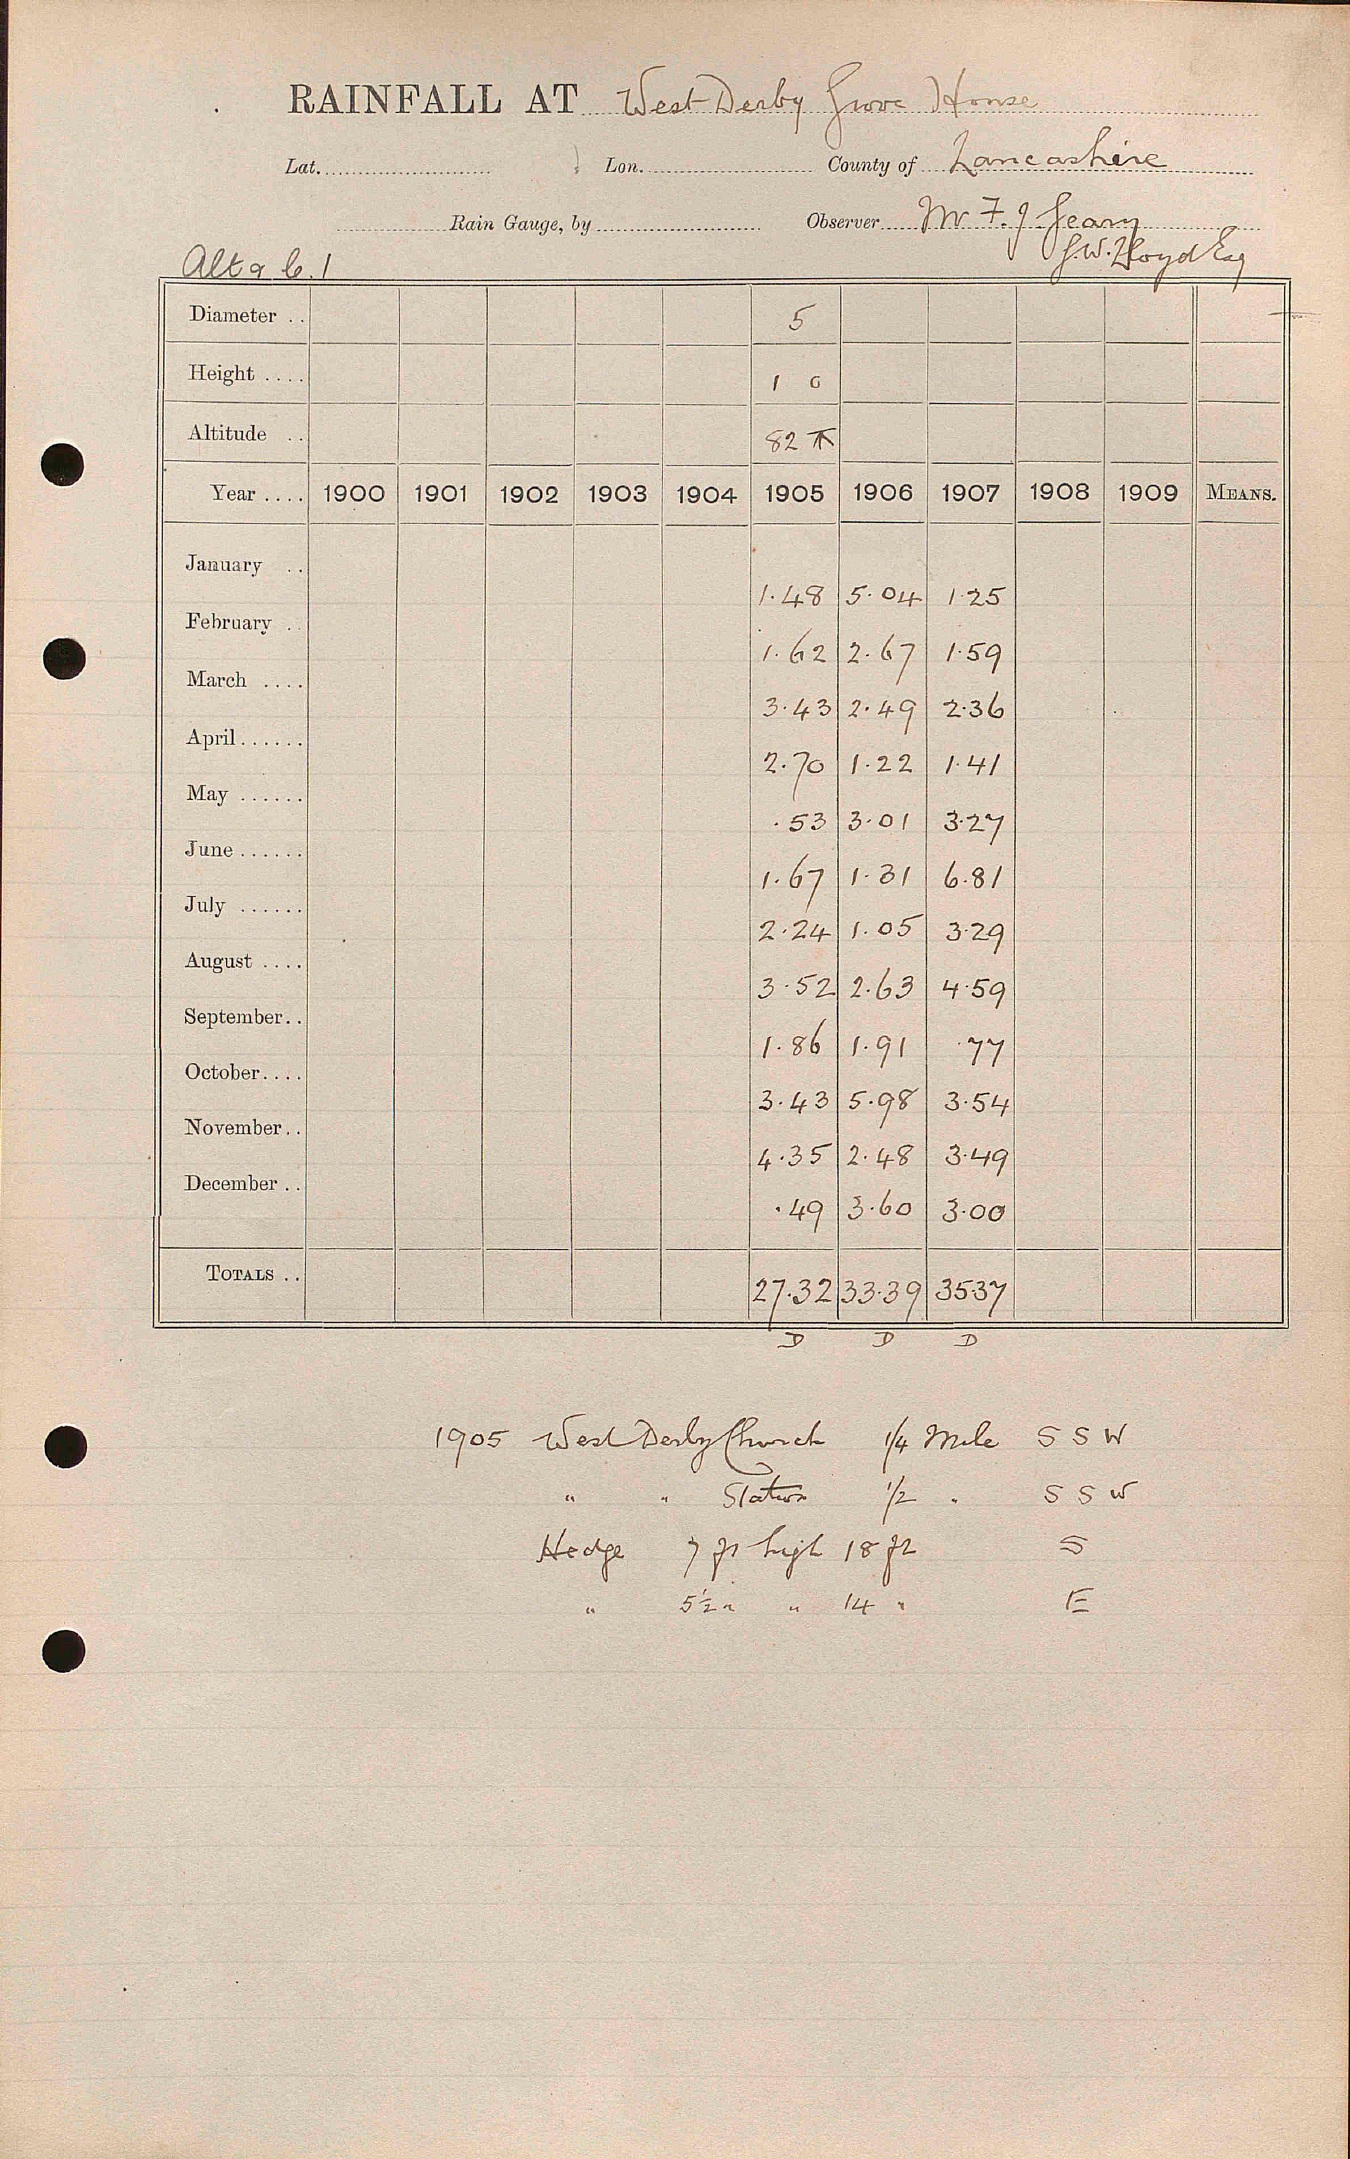 RAINFALL AT West Derby Grove House
Lat. Lon. County of Lancashire
Rain Gauge, by Observer Mr F. J. Geary
G. W. Lloyd Esq
Alt a 6.1
Diameter .. 5
Height .... 1 0
Altitude .. 82
Year .... 1900 1901 1902 1903 1904 1905 1906 1907 1908 1909 MEANS.
January .. 1.48 5.04 1.25
February .. 1.62 2.67 1.59
March .... 3.43 2.49 2.36
April ...... 2.70 1.22 1.41
May ...... .53 3.01 3.27
June ...... 1.67 1.31 6.81
July ...... 2.24 1.05 3.29
August .... 3.52 2.63 4.59
September .. 1.86 1.91 .77
October .... 3.43 5.98 3.54
November .. 4.35 2.48 3.49
December .. .49 3.60 3.00
TOTALS .. 27.32 33.39 35.37
D D D
1905 West Derby Church 1/4 Mile S S W
" " Station 1/2 " S S W
Hedge 7 ft high 18 ft S
" 5½ " " 14 " E